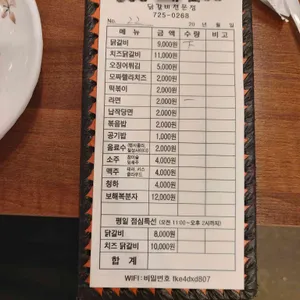 닭갈비전문점
725-0268
No. 33 20 년 월 일
메뉴 금액 수량 비고
닭갈비 9,000원
치즈닭갈비 11,000원
오징어튀김 5,000원
모짜렐라치즈 2,000원
떡볶이 2,000원
라면 2,000원
납작당면 2,000원
볶음밥 2,000원
공기밥 1,000원
음료수 2,000원
소주 4,000원
맥주 4,000원
청하 4,000원
보해복분자 12,000원
평일 점심특선 (오전 11:00~오후 2시까지)
닭갈비 8,000원
치즈 닭갈비 10,000원
합계
WIFI: 비밀번호 fke4dxd807